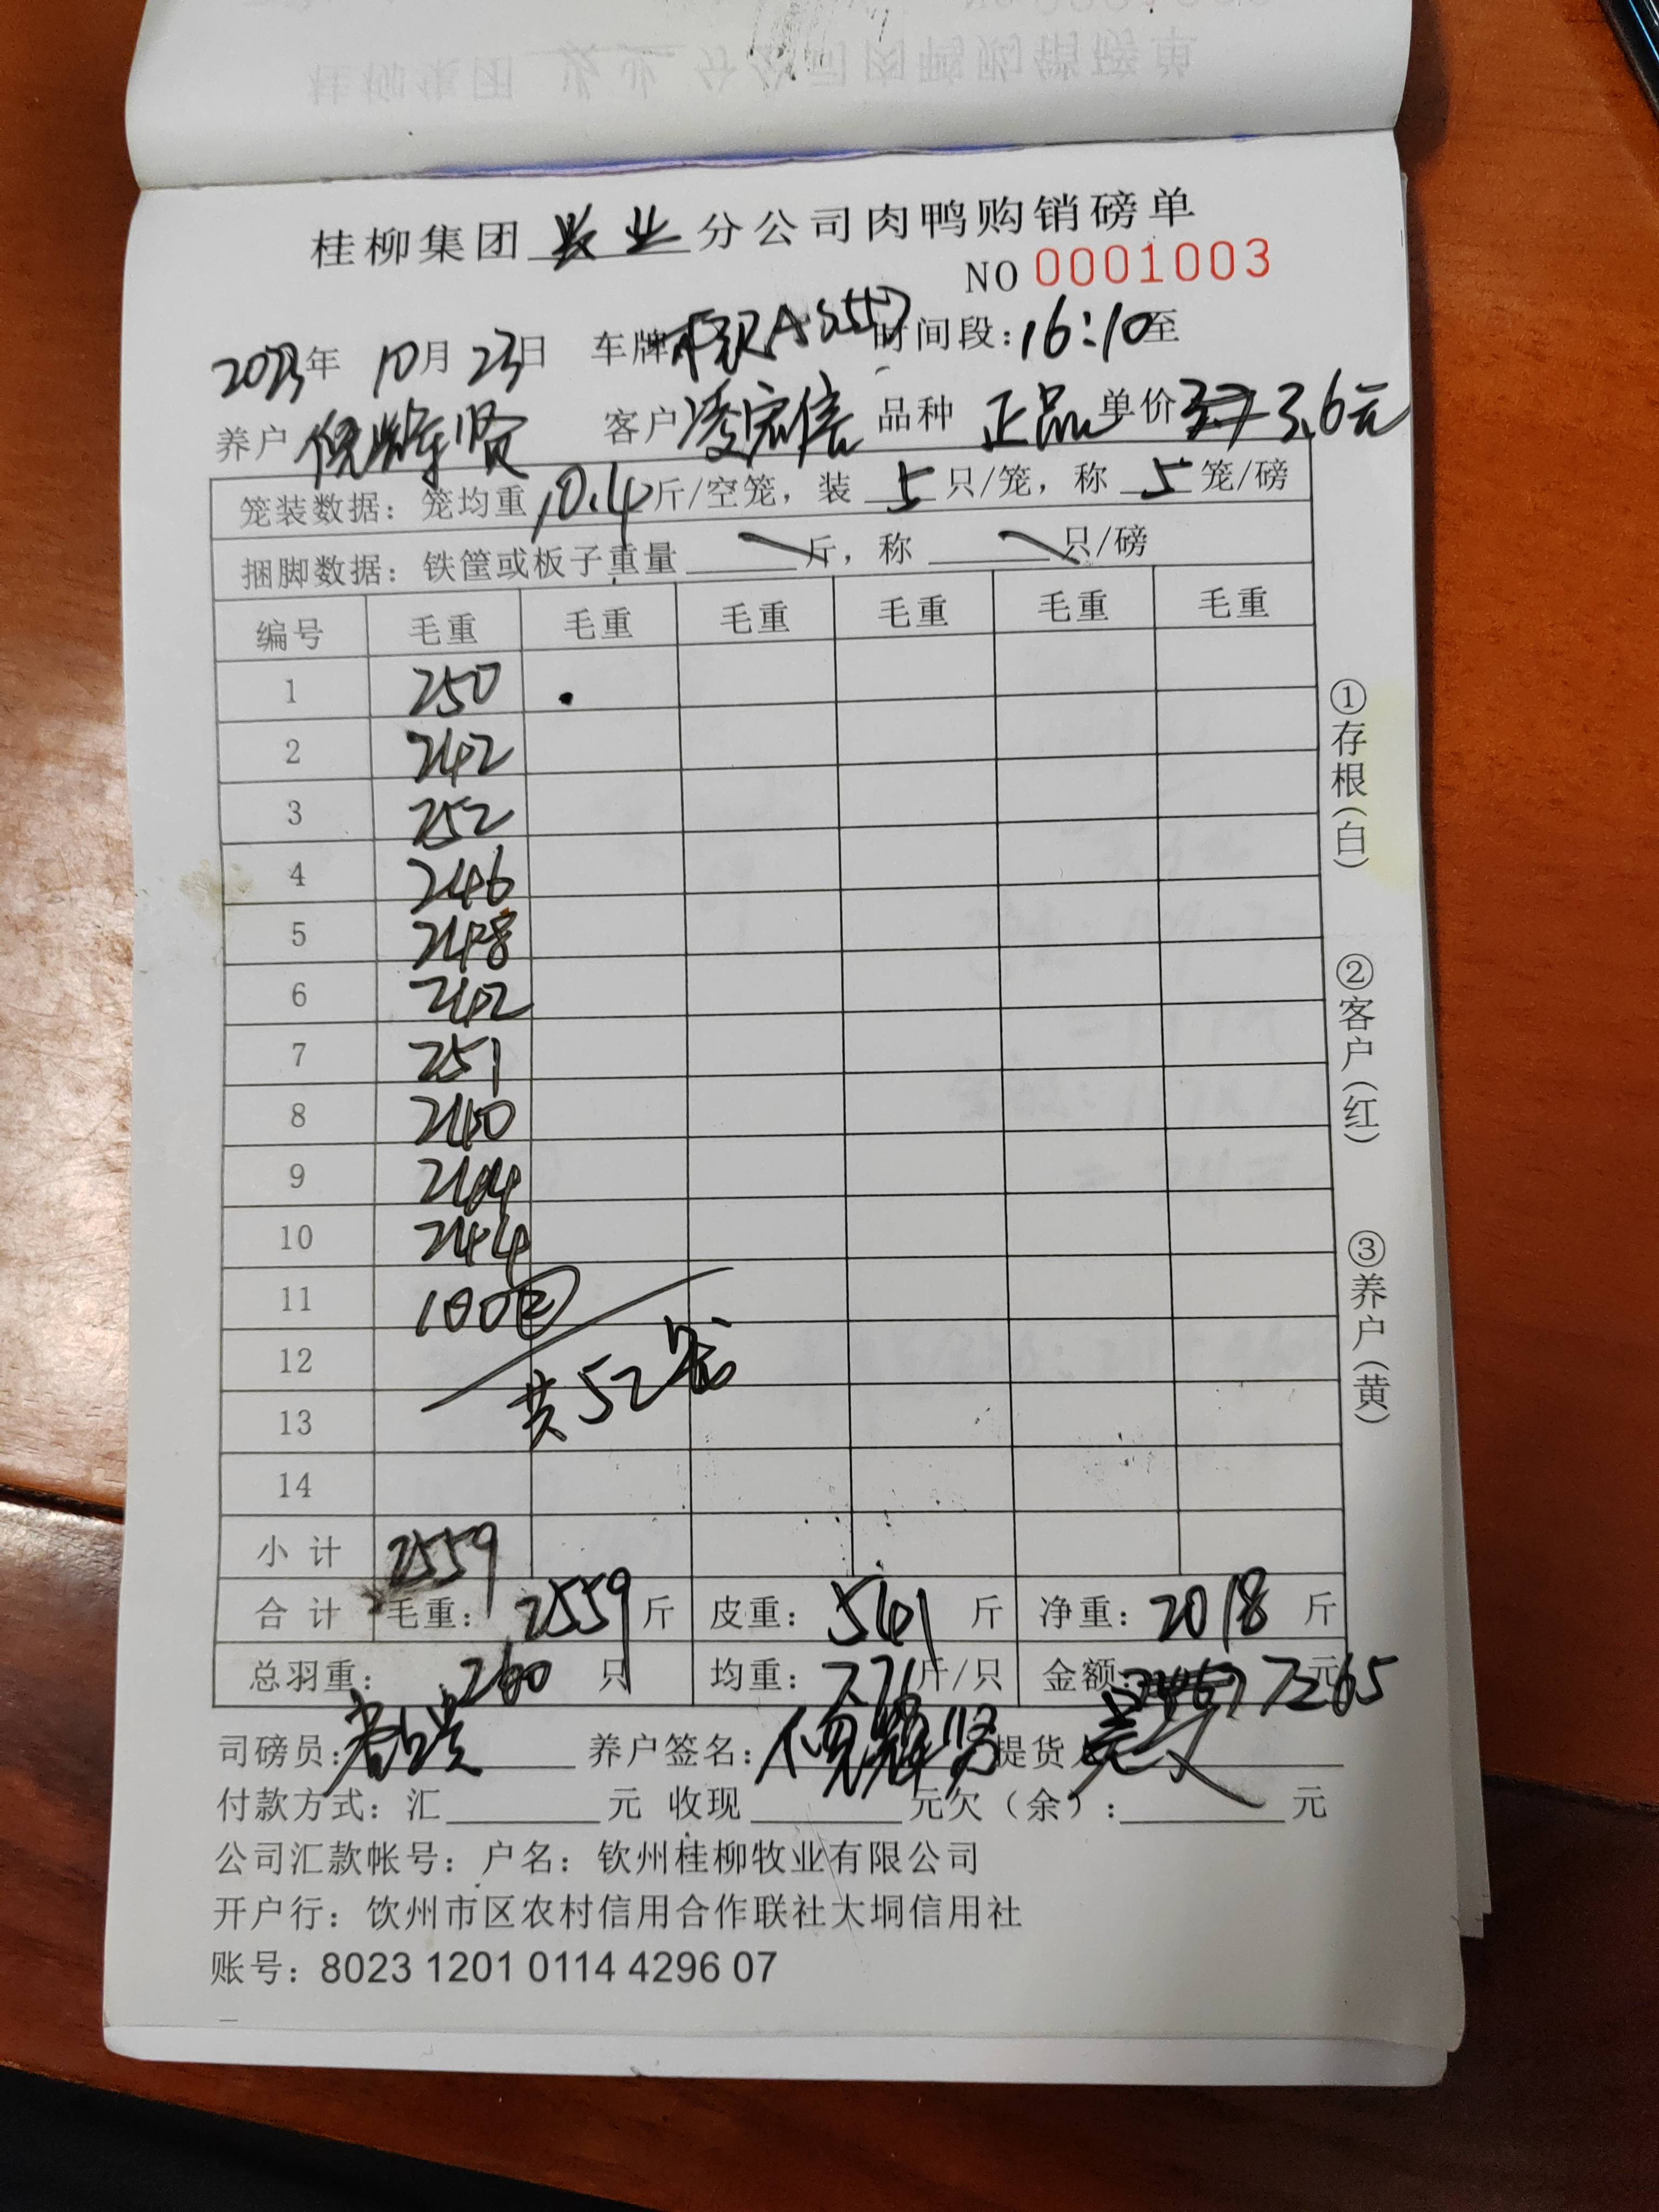 桂柳集团 农业 分公司肉鸭购销磅单
NO 0001003
2023年 10月 23日 车牌 时间段：16:10至
养户 倪辉贤 客户 凌宏信 品种 正品 单价 3.7 3.6元
笼装数据：笼均重 10.4 斤/空笼，装 5 只/笼，称 5 笼/磅
捆脚数据：铁筐或板子重量 斤，称 只/磅
编号 毛重 毛重 毛重 毛重 毛重 毛重
1 250
2 242
3 252
4 246
5 248
6 242
7 251
8 240
9 244
10 244
11 100②
12 共52笼
13
14
小计 2559
合计 毛重：2559 斤 皮重：541 斤 净重：2018 斤
总羽重：260 只 均重：7.76斤/只 金额： 元 7265
司磅员： 养户签名：倪辉贤 提货人
付款方式：汇 元 收现 元欠（余）： 元
公司汇款帐号：户名：钦州桂柳牧业有限公司
开户行：钦州市区农村信用合作联社大垌信用社
账号：8023 1201 0114 4296 07
①存根(白)
②客户(红)
③养户(黄)